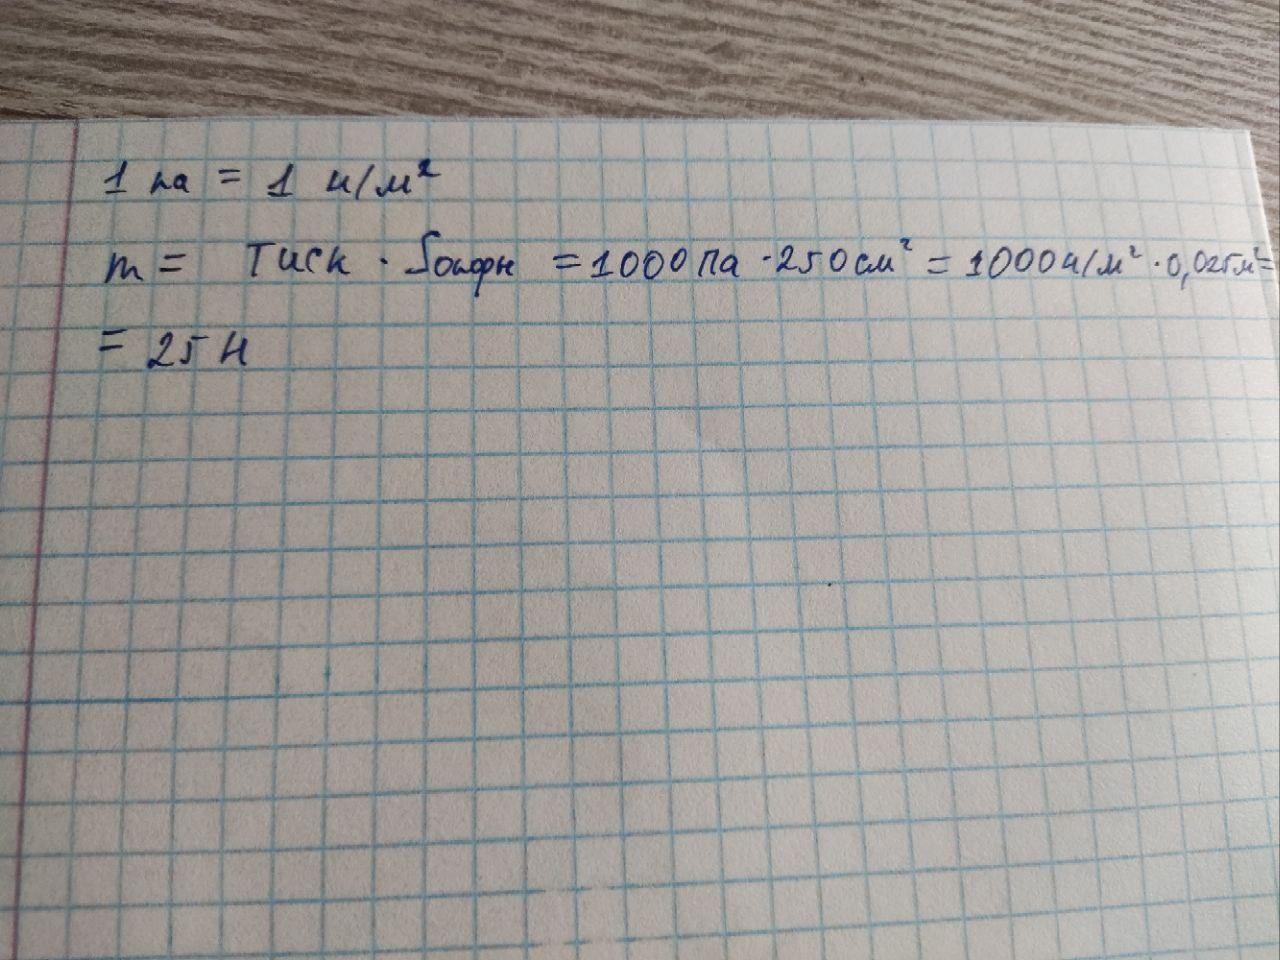 1 па = 1 н/м²
m = Тиск · Sопори = 1000 Па · 250 см² = 1000 н/м² · 0,025 м² =
= 25 Н